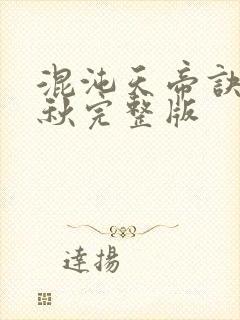 混沌天帝訣
秋完整版
達揚